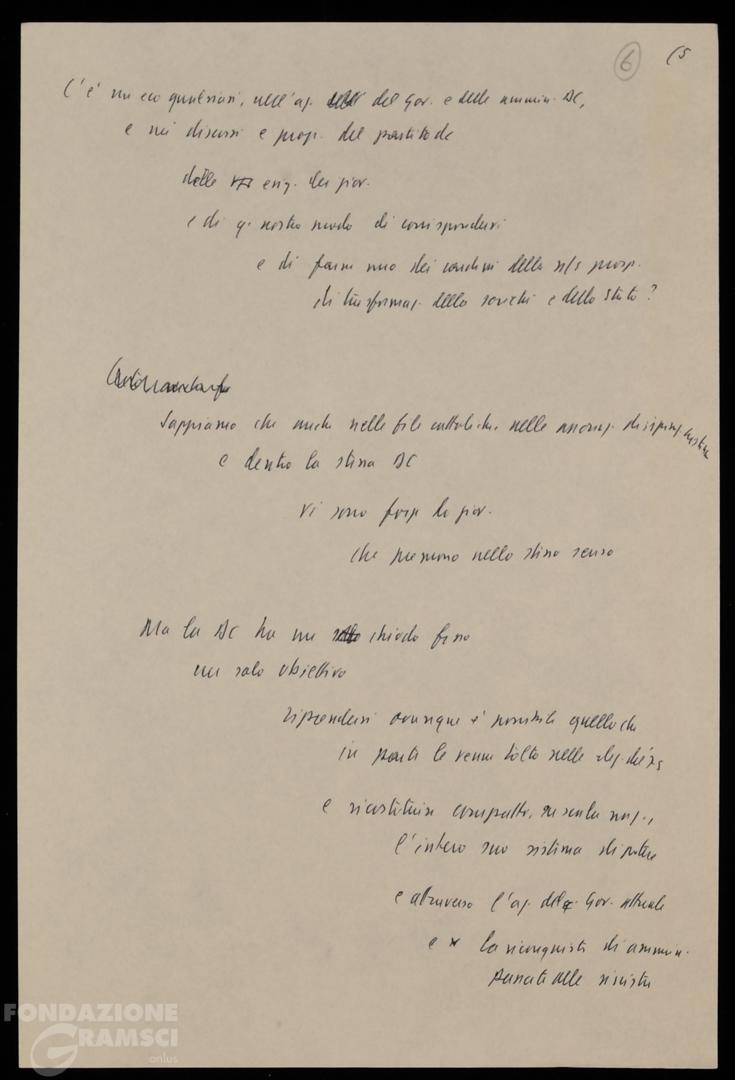 6
(5
C'è un eco qualsiasi, nell'az. del Gov. e delle ammin. DC,
e nei discorsi e prop. del partito dc
delle esig. dei giov.
e di q. nostro modo di corrispondervi
e di farne uno dei cardini della n/s prosp.
di trasformaz. della società e dello Stato?
Sappiamo che anche nelle file cattoliche, nelle assoc. di ispiraz. cristiana
e dentro la stessa DC
vi sono forze di giov.
che premono nello stesso senso
Ma la DC ha un chiodo fisso
un solo obiettivo
riprendersi ovunque è possibile quello che
in parte le venne tolto nelle elez. del '75
e ricostituire compatto, su scala naz.,
l'intero suo sistema di potere
e attraverso l'az. del Gov. attuale
e x la riconquista di ammin.
passate alle sinistre
FONDAZIONE
GRAMSCI
onlus